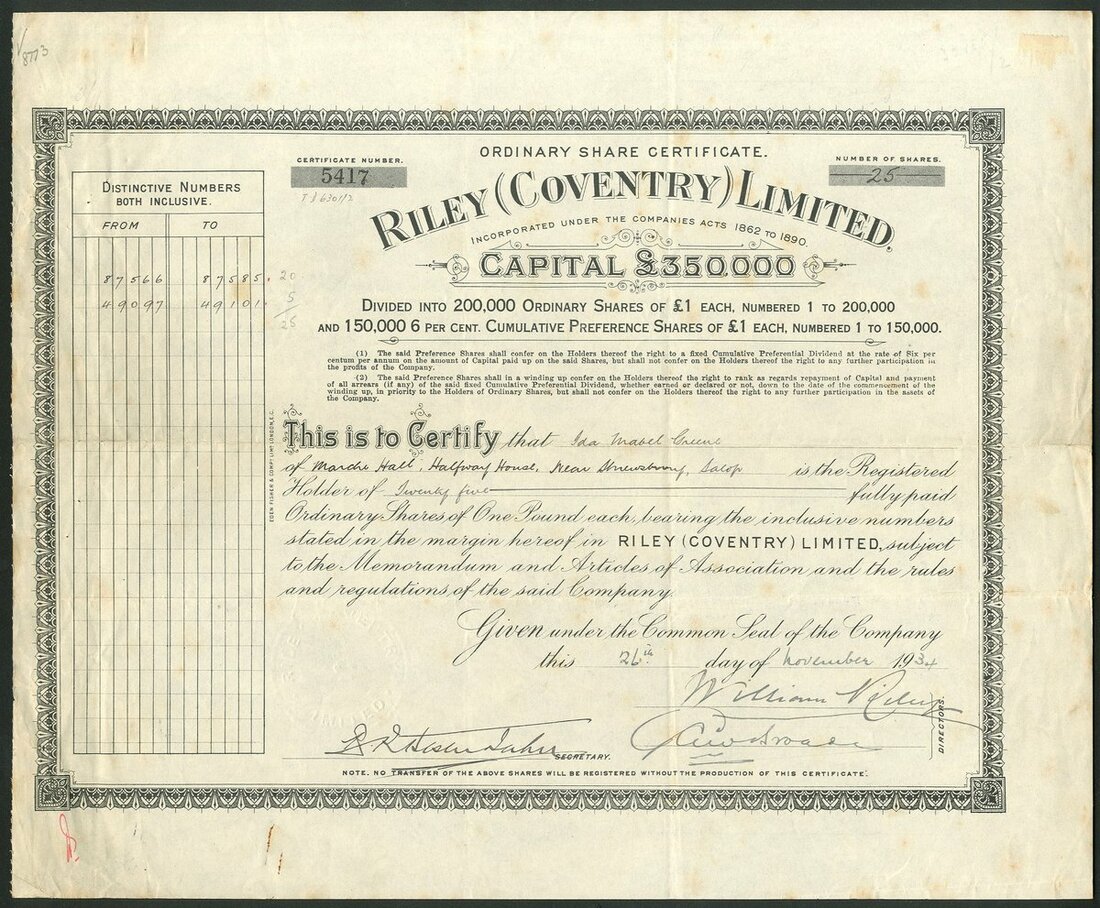 8773
ORDINARY SHARE CERTIFICATE.
CERTIFICATE NUMBER.
5417
NUMBER OF SHARES.
25
RILEY (COVENTRY) LIMITED.
INCORPORATED UNDER THE COMPANIES ACTS 1862 TO 1890.
CAPITAL £350,000
DIVIDED INTO 200,000 ORDINARY SHARES OF £1 EACH, NUMBERED 1 TO 200,000
AND 150,000 6 PER CENT. CUMULATIVE PREFERENCE SHARES OF £1 EACH, NUMBERED 1 TO 150,000.
DISTINCTIVE NUMBERS
BOTH INCLUSIVE.
FROM TO
87566 87585 20
49097 49101 5
25
(1) The said Preference Shares shall confer on the Holders thereof the right to a fixed Cumulative Preferential Dividend at the rate of Six per
centum per annum on the amount of Capital paid up on the said Shares, but shall not confer on the Holders thereof the right to any further participation in
the profits of the Company.
(2) The said Preference Shares shall in a winding up confer on the Holders thereof the right to rank as regards repayment of Capital and payment
of all arrears (if any) of the said fixed Cumulative Preferential Dividend, whether earned or declared or not, down to the date of the commencement of the
winding up, in priority to the Holders of Ordinary Shares, but shall not confer on the Holders thereof the right to any further participation in the assets of
the Company.
EDEN FISHER & COMPY LIMD LONDON, E.C.
This is to Certify that Ida Mabel Greene
of Marche Hall, Halfway House, Near Shrewsbury, Salop is the Registered
Holder of Twenty five fully paid
Ordinary Shares of One Pound each, bearing the inclusive numbers
stated in the margin hereof in RILEY (COVENTRY) LIMITED, subject
to the Memorandum and Articles of Association and the rules
and regulations of the said Company.
Given under the Common Seal of the Company
this 26th day of November 1934
William Riley
DIRECTORS.
SECRETARY.
NOTE. NO TRANSFER OF THE ABOVE SHARES WILL BE REGISTERED WITHOUT THE PRODUCTION OF THIS CERTIFICATE.